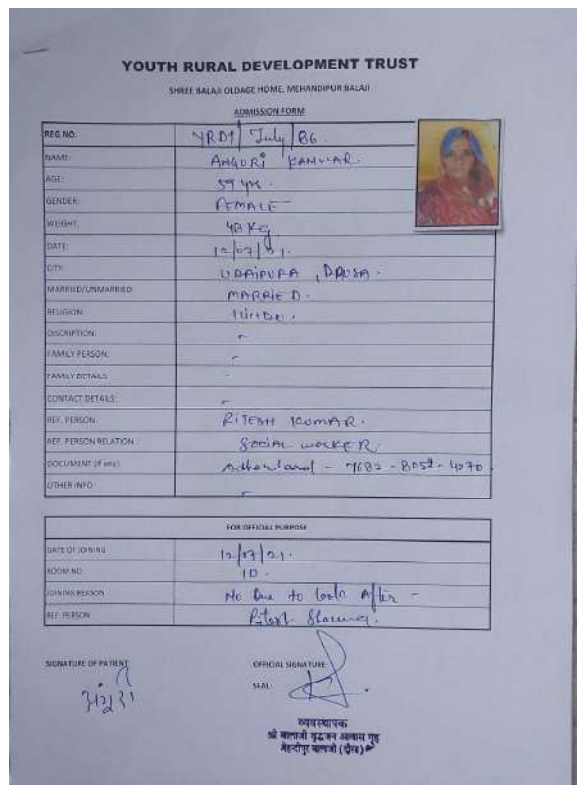 YOUTH RURAL DEVELOPMENT TRUST
SHREE BALAJI OLDAGE HOME, MEHANDIPUR BALAJI
ADMISSION FORM
REG NO. YRDT/ July /86.
NAME: ANGURI KANWAR.
AGE: 59 yrs.
GENDER: FEMALE
WEIGHT: 48 Kg
DATE: 12/07/21.
CITY: UDAIPURA, DAUSA.
MARRIED/UNMARRIED MARRIED.
RELIGION: Hindu.
DISCRIPTION: -
FAMILY PERSON: -
FAMILY DETAILS -
CONTACT DETAILS: -
REF. PERSON: RITESH KUMAR.
REF. PERSON RELATION SOCIAL WORKER
DOCUMENT (if any) - 7682 - 8052 - 4270
OTHER INFO -
FOR OFFICIAL PURPOSE
DATE OF JOINING 12/07/21.
ROOM NO 10.
JOINING REASON No One to look After -
REF. PERSON Ritesh Sharma.
SIGNATURE OF PATIENT OFFICIAL SIGNATURE
SEAL
अंगूरी
व्यवस्थापक
श्री बालाजी वृद्धजन आवास गृह
मेहन्दीपुर बालाजी (दौसा)